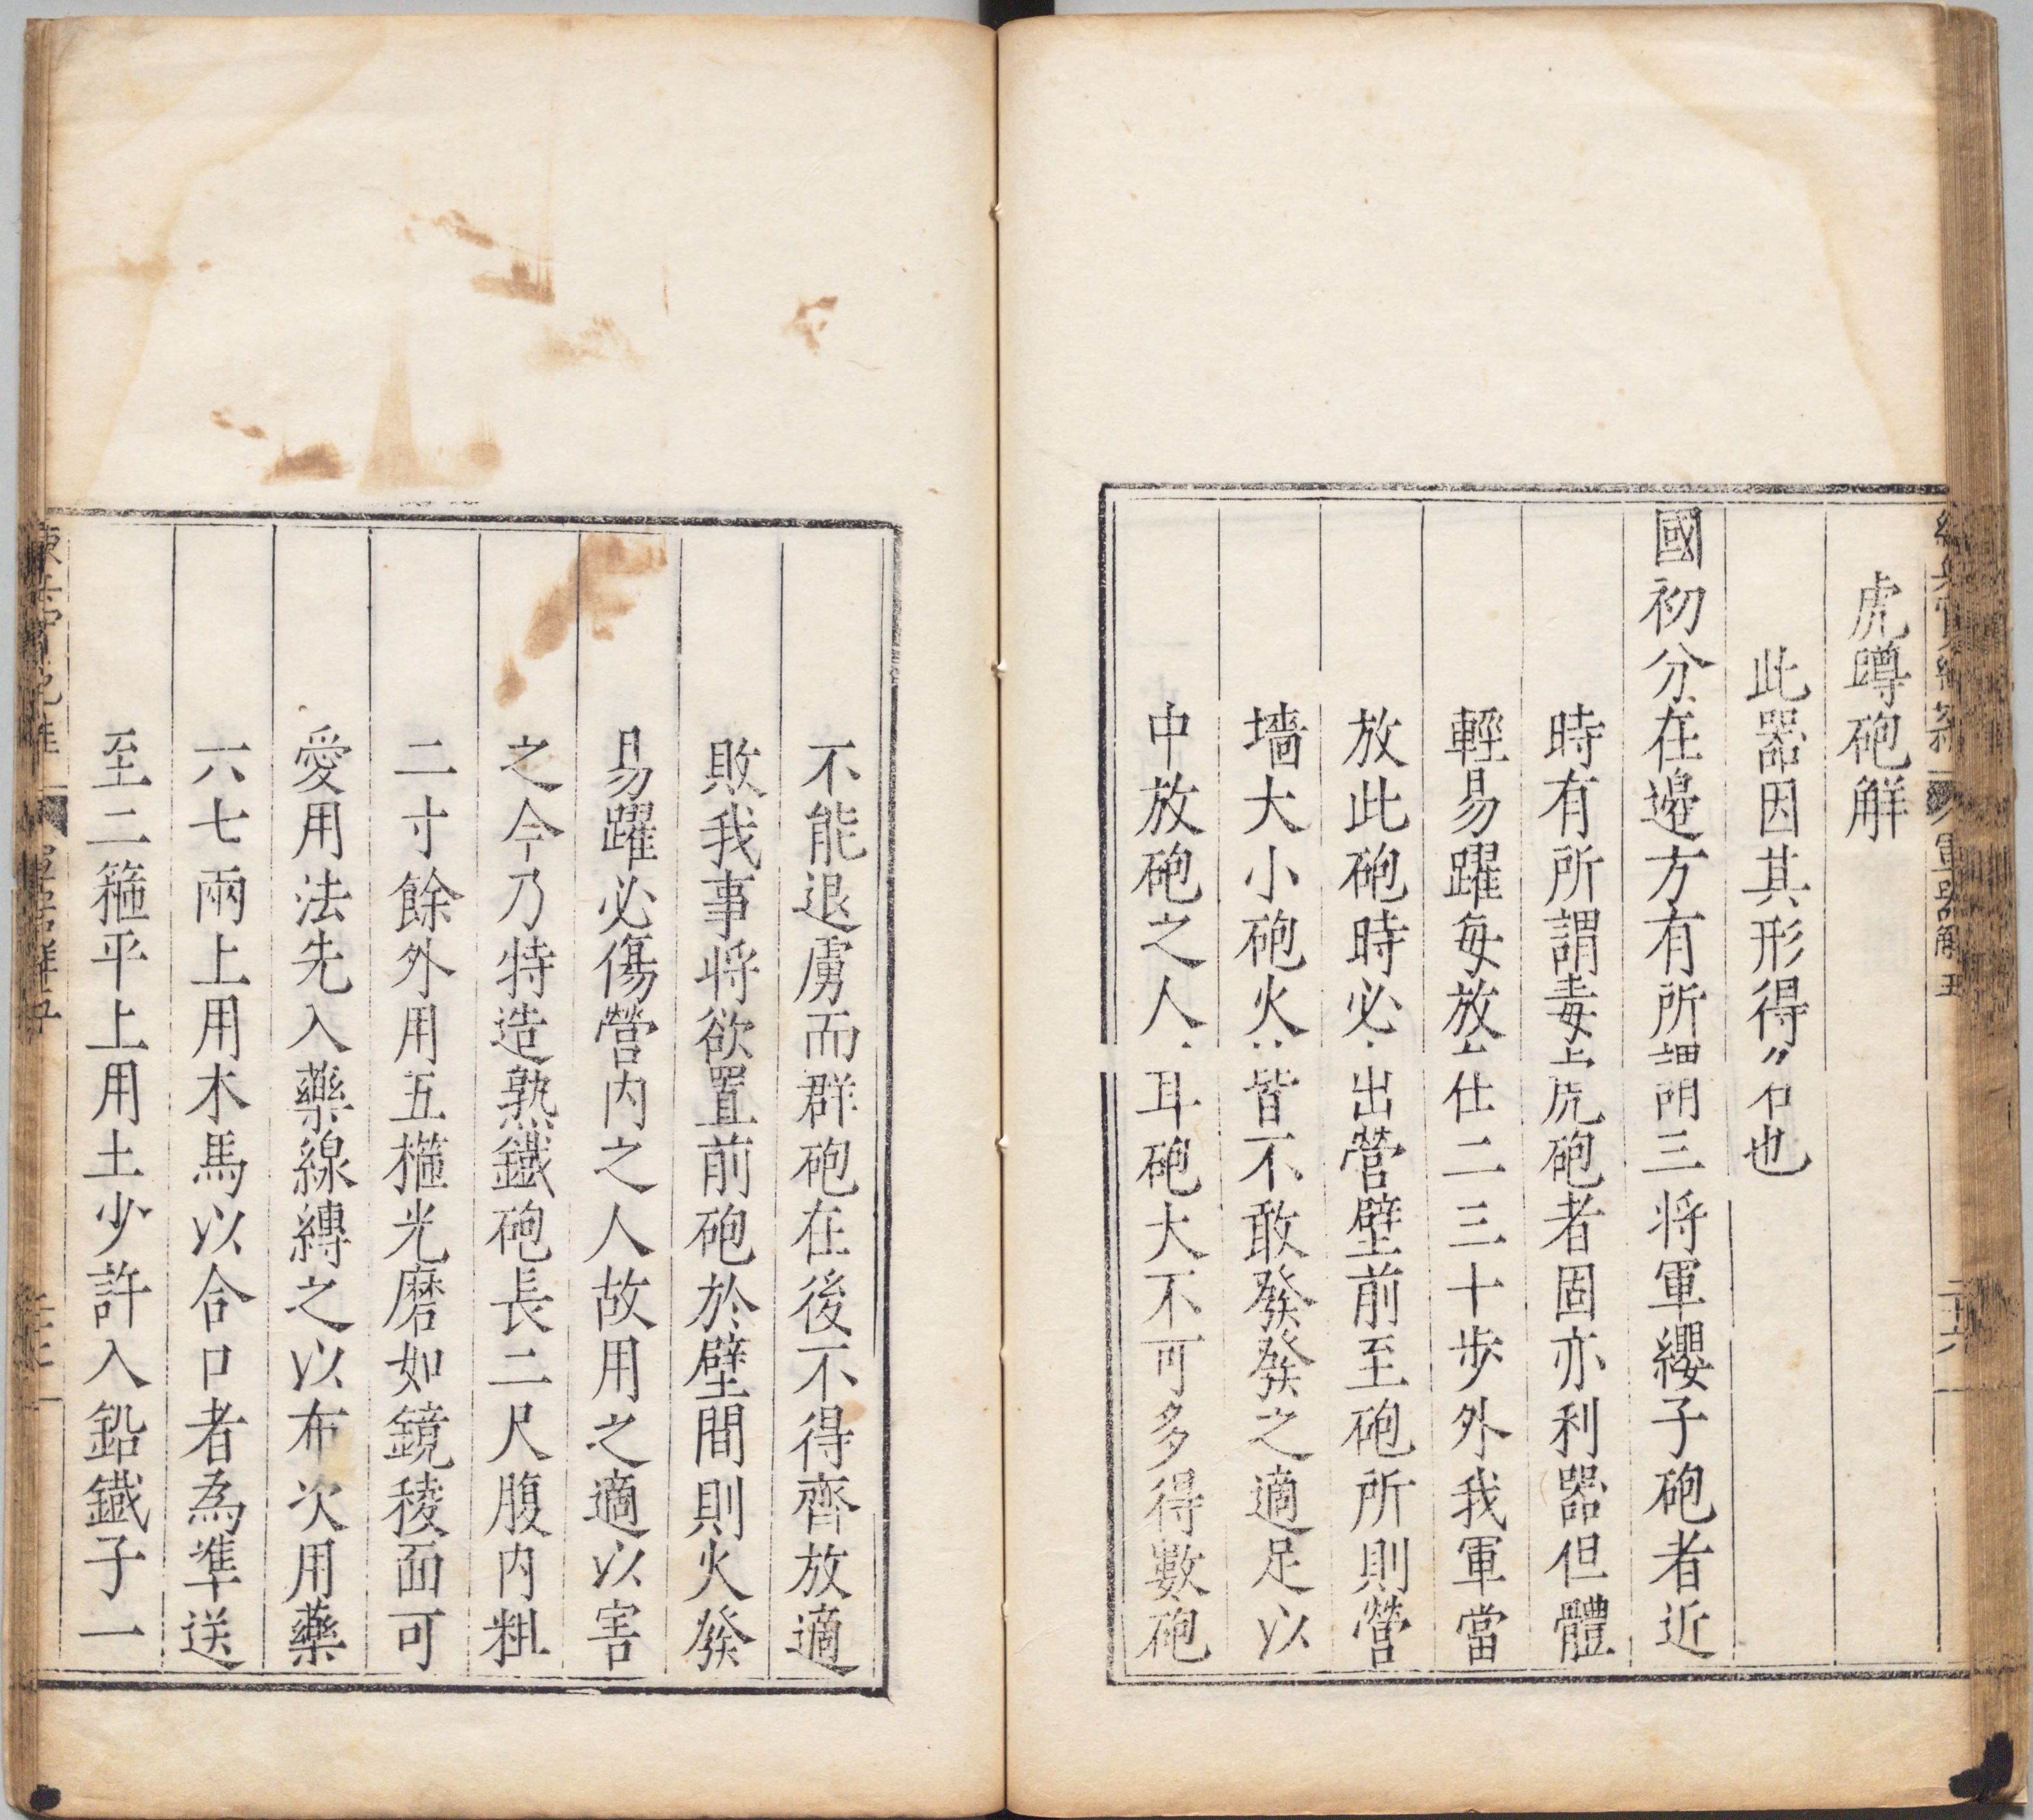 虎蹲砲解
此器因其形得名也
國初分在邊方有所謂三将軍纓子砲者近
時有所謂毒虎砲者固亦利器但體
輕易躍每放在二三十步外我軍當
放此砲時必出營壁前至砲所則營
墻大小砲火皆不敢發發之適足以
中放砲之人耳砲大不可多得數砲
不能退虜而群砲在後不得齊放適
敗我事将欲置前砲於壁間則火發
易躍必傷營内之人故用之適以害
之今乃特造熟鐵砲長二尺腹内粗
二寸餘外用五箍光磨如鏡稜面可
愛用法先入藥線縳之以布次用藥
六七兩上用木馬以合口者為準送
至二箍平上用土少許入鉛鐵子一